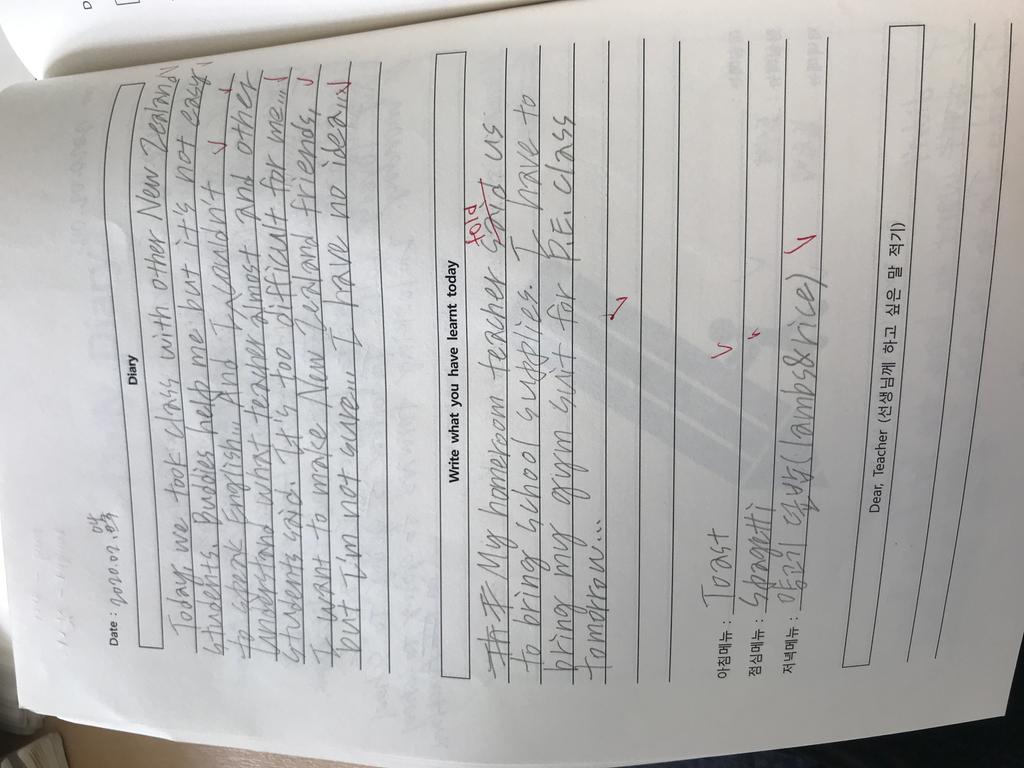 Date : 2020.02.
Diary
Today, we took class with other New Zealand
students. Buddies help me but it's not easy
to speak English... And I couldn't
understand what teacher almost and other
students said. It's too difficult for me...
I want to make New Zealand friends,
but I'm not sure... I have no idea...
Write what you have learnt today
told
My homeroom teacher said us
to bring school supplies. I have to
bring my gym suit for P.E. class
tomorrow...
아침메뉴 : Toast
점심메뉴 : Spagetti
저녁메뉴 : 양고기 덮밥(lambs&rice)
Dear, Teacher (선생님께 하고 싶은 말 적기)